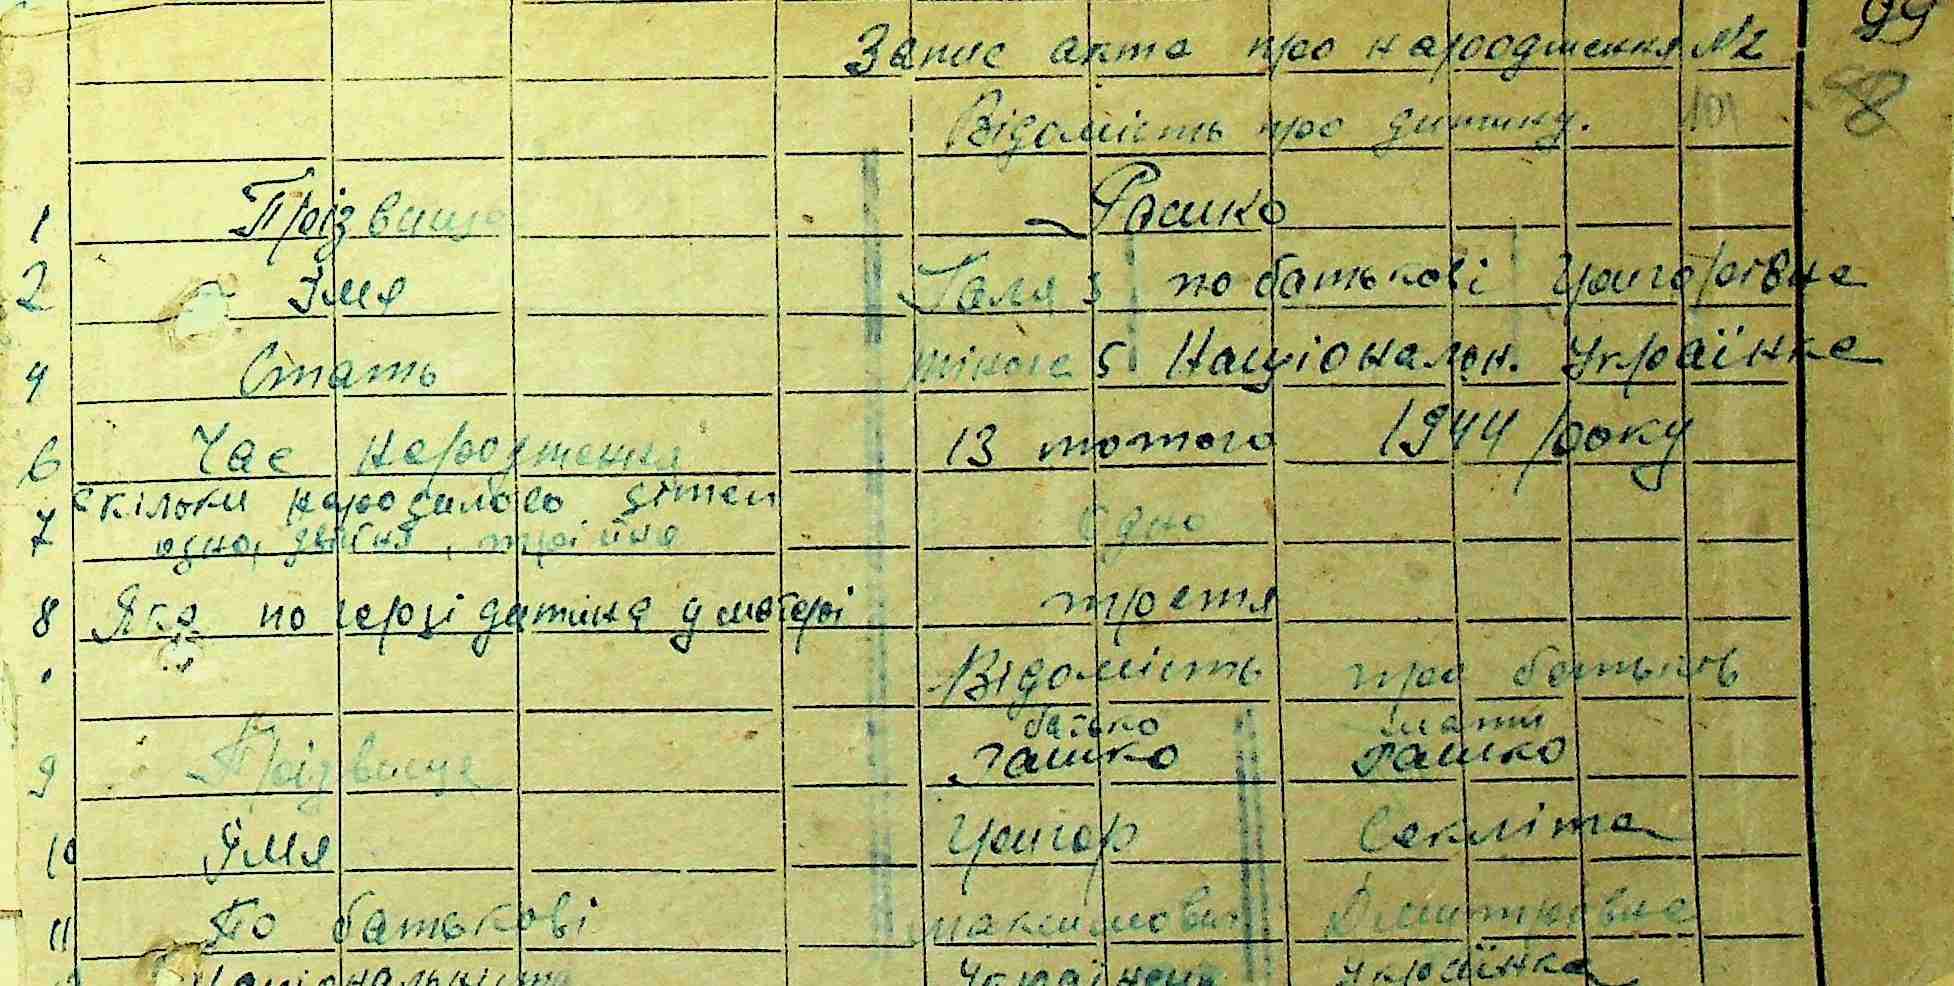 99
Запис акта про народження №2
Відомість про дитину. 101 98
1 Прізвище Рашко
2 Імя Галя 3 по батькові Григорівна
4 Стать жіноча 5 Національн. Українка
6 Час народження 13 лютого 1944 року
7 скільки народилось дітей
одно, двійня, трійня Одно
8 Яка по черзі дитина у матері третя
Відомість про батьків
батько мати
9 Прізвище Рашко Рашко
10 Імя Григор Секліта
11 По батькові Максимович Дмитровна
Національність Українець Українка